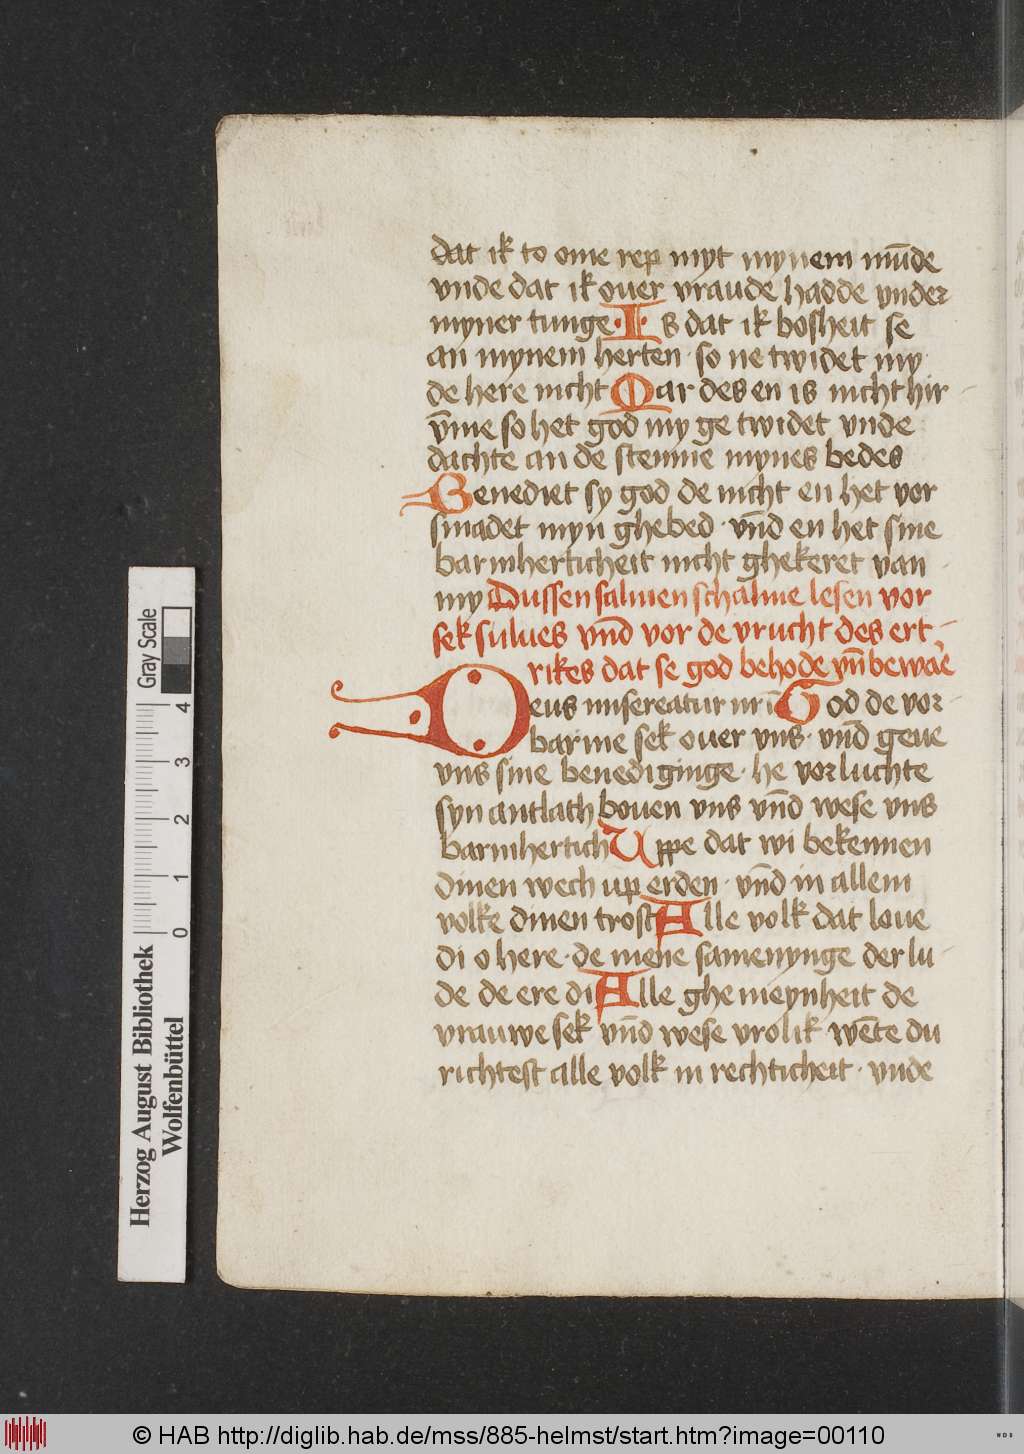 dat ik to ome rep myt mynem mūde
vnde dat ik ouer vraude hadde vnder
myner tunge · Is dat ik bosheit se
an mynem herten · so ne twidet my
de here nicht Mar des en is nicht hir
v̄me so het god my ge twidet vnde
dachte an de stemme mynes bedes
Benediet sy god de nicht en het vor
smadet myn ghebed · vn̄d en het sine
barmherticheit nicht ghekeret van
my Dussen salmen schalme lesen vor
sek sulues vn̄d vor de vrucht des ert
rikes dat se god behode vn̄ beware
Deus misereatur nr̄i God de vor
barme sek ouer vns · vn̄d geue
vns sine benediginge · he vorluchte
syn antlath bouen vns vn̄d wese vns
barmhertich Uppe dat wi bekennen
dinen wech up erden · vn̄d in allem
volke dinen trost Alle volk dat loue
di o here · de mene samenynge der lu
de de ere di Alle ghemeynheit de
vrauwe sek vn̄d wese vrolik wēte du
richtest alle volk in rechticheit · vnde
Gray Scale
4
3
2
1
0
Herzog August Bibliothek
Wolfenbüttel
© HAB http://diglib.hab.de/mss/885-helmst/start.htm?image=00110